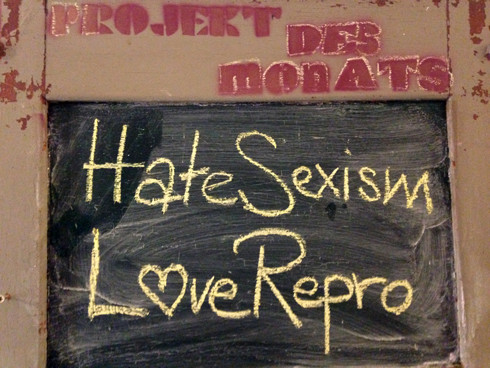 PROJEKT
DES
MONATS
Hate Sexism
Love Repro